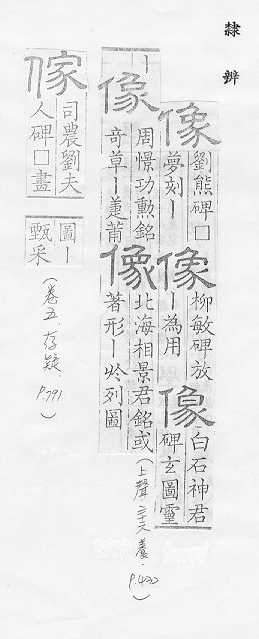 隸辨
像劉熊碑□夢刻ー像柳敏碑放ー為用像白石神君碑玄圖靈
ー像周憬功勲銘奇草ー蓮莆像北海相景君銘或著形ー於列圖
(上聲·三十六養·P.420)
傢司農劉夫人碑□畫圖ー甄采
(卷五·存疑·P.791)